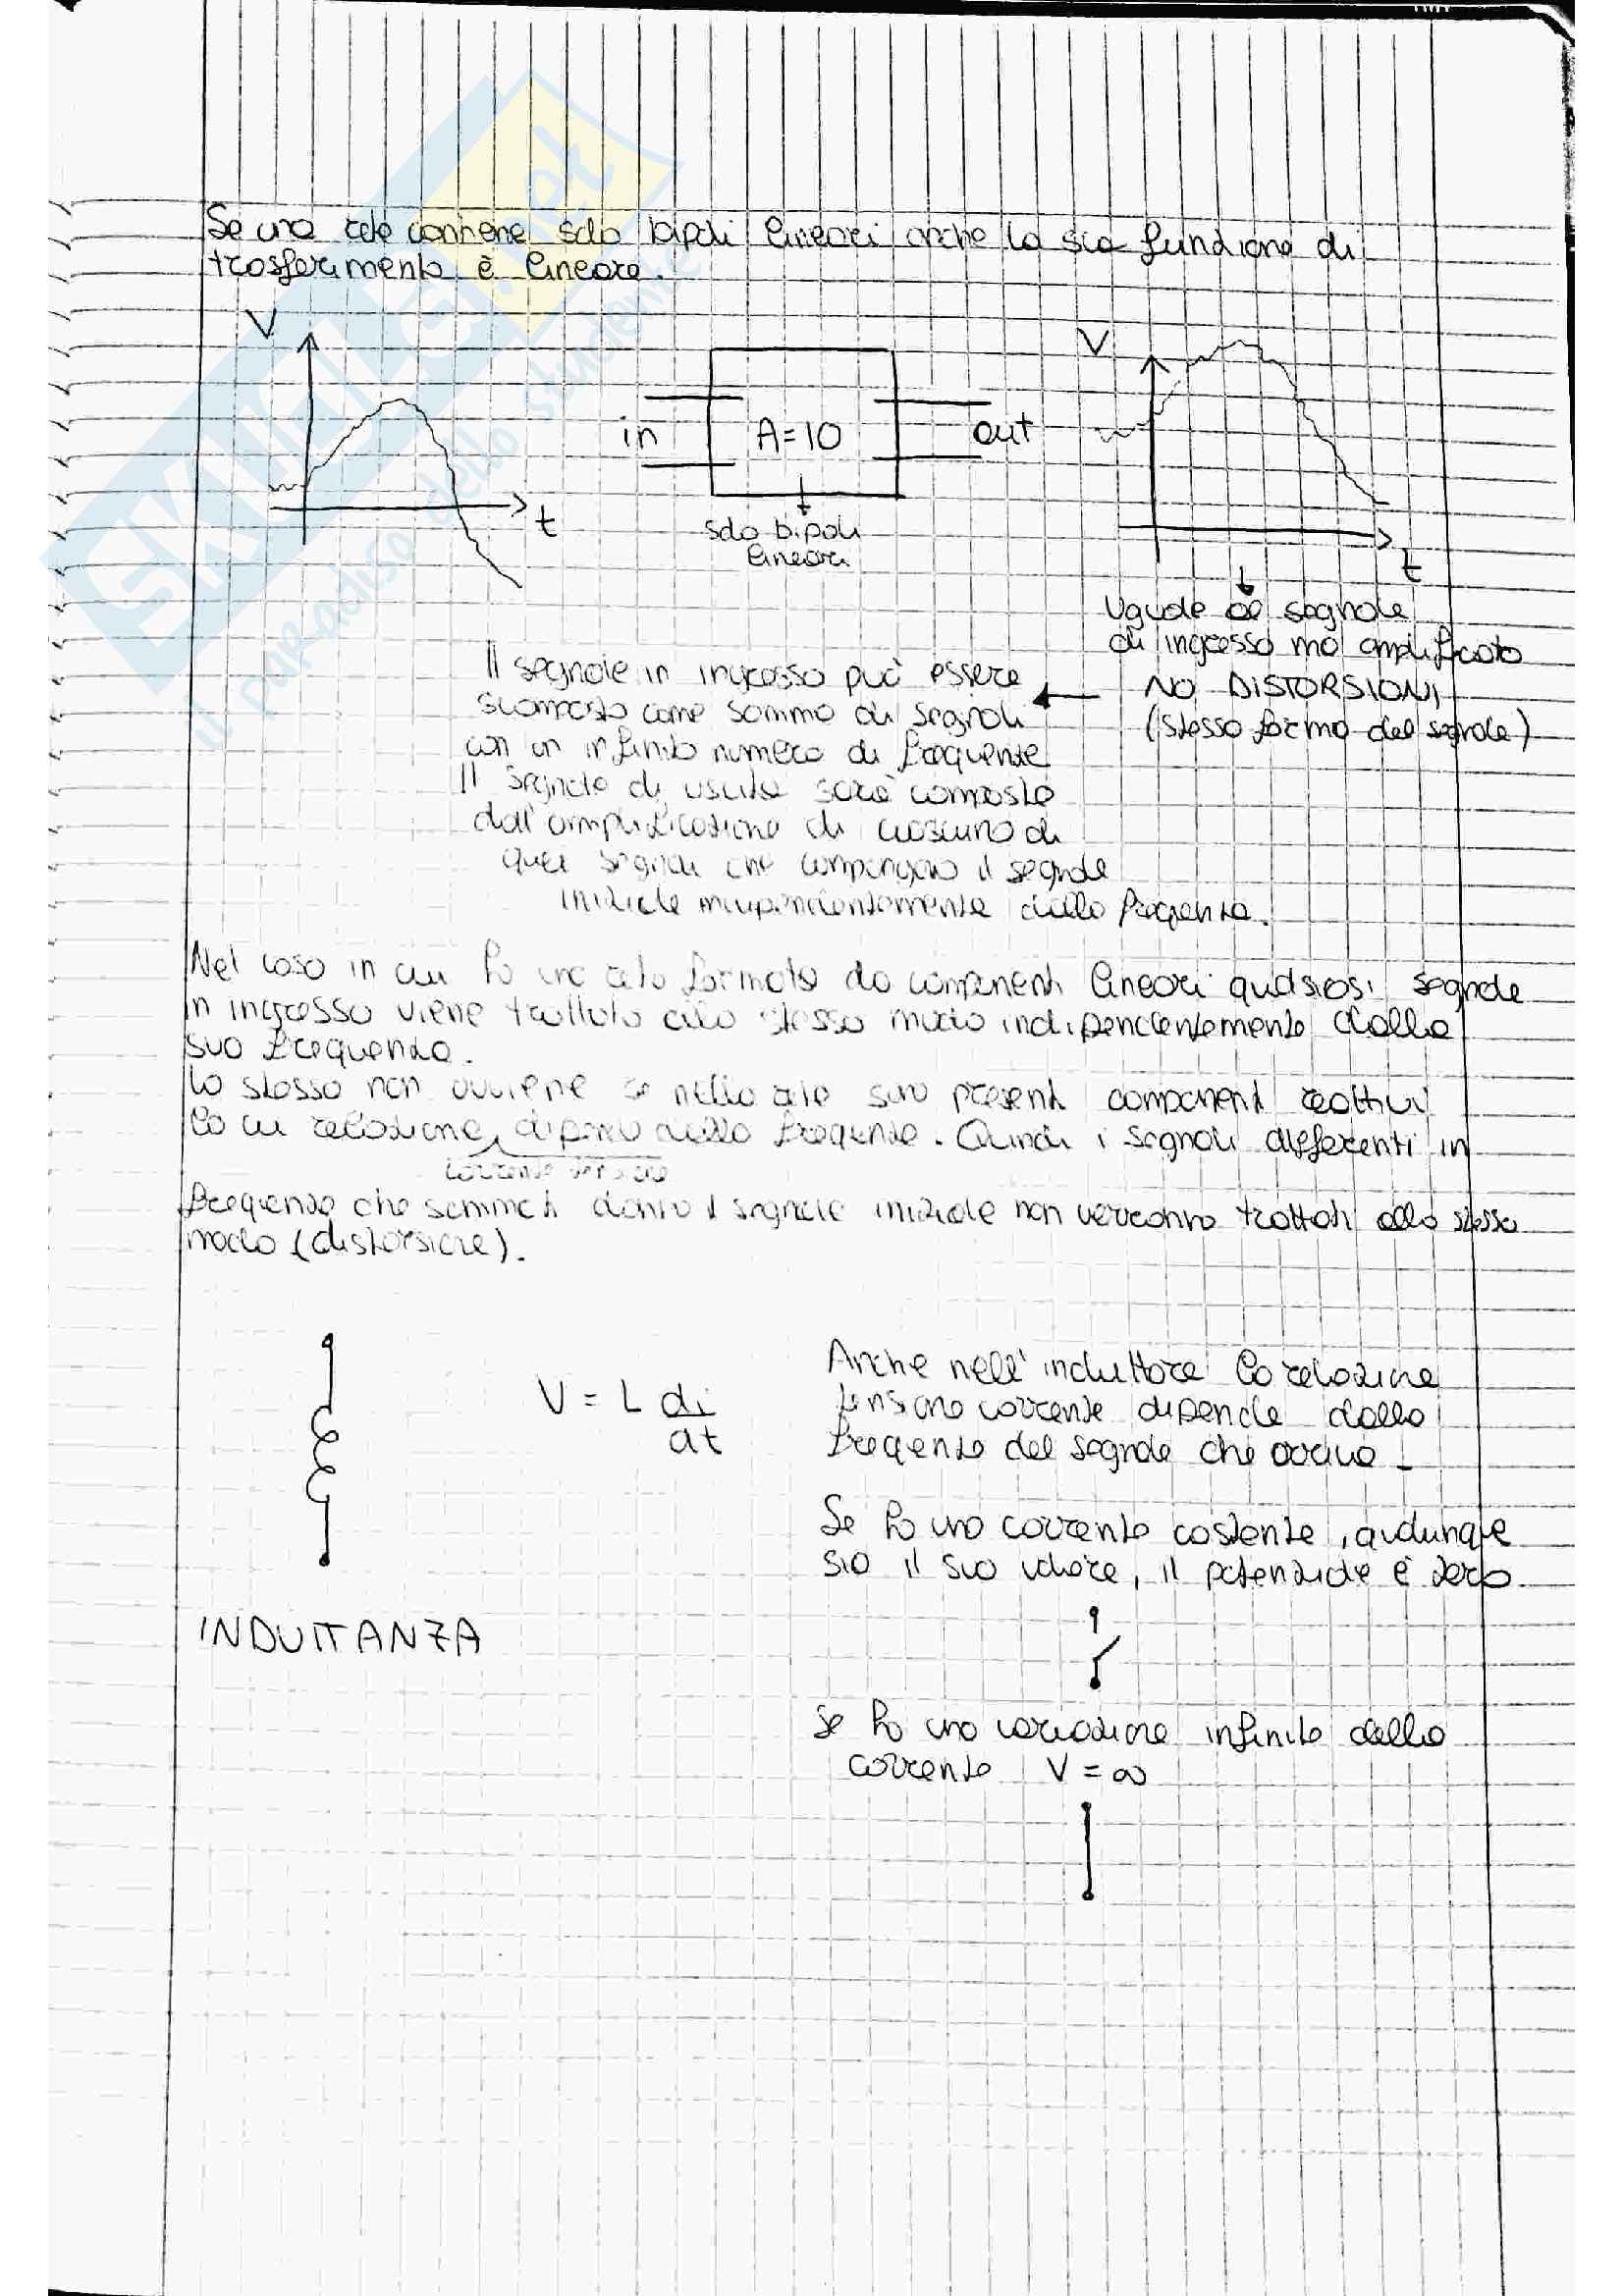 Se una rete contiene solo bipoli lineari anche la sua funzione di
trasferimento è lineare.
V
t
in
A=10
out
solo bipoli
lineari
V
t
Uguale al segnale
di ingresso ma amplificato
NO DISTORSIONI
(stessa forma del segnale)
Il segnale in ingresso può essere
scomposto come somma di segnali
con un infinito numero di frequenze
Il segnale di uscita sarà composto
dall'amplificazione di ciascuno di
quei segnali che compongono il segnale
iniziale indipendentemente dalla frequenza.
Nel caso in cui ho una rete formata da componenti lineari qualsiasi segnale
in ingresso viene trattato allo stesso modo indipendentemente dalla
sua frequenza.
Lo stesso non avviene se nella rete sono presenti componenti reattivi
la cui relazione dipende dalla frequenza. Quindi i segnali differenti in
corrente tensione
frequenza che sommati danno il segnale iniziale non verranno trattati allo stesso
modo (distorsione).
V = L di
dt
Anche nell'induttore la relazione
tensione corrente dipende dalla
frequenza del segnale che arriva
Se ho una corrente costante, qualunque
sia il suo valore, il potenziale è zero
INDUTTANZA
Se ho una variazione infinita della
corrente V = ∞
SKUOLA.net
il paradiso dello studente